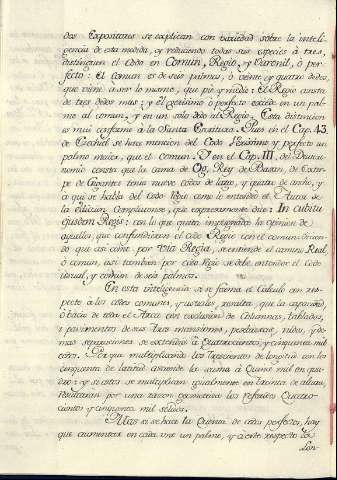 dos Expositores se explican con variedad sobre la inteli-
gencia de esta medida, y reduciendo todas sus especies á tres,
distinguen el Codo en Comun, Regio, y Varonil, ó per-
fecto: El Comun es de seis palmos, ó veinte y quatro dedos,
que viene á ser lo mismo, que pie y medio: El Regio consta
de tres dedos mas: y el Geximo ó perfecto excede en un pal-
mo al comun, y en un solo dedo al Regio. Esta distincion
es mui conforme á la Santa Escritura. Pues en el Cap. 43.
de Ezechiel se hace mencion del Codo y perfecto un
palmo maior, que el comun. Y en el Cap. III. del Deutero-
nomio consta que la cama de Og, Rey de Basan, de Estir-
pe de Gigantes tenia nueve codos de largo, y quatro de ancho, y
a qui se habla del Codo Regio como lo entendió el Autor de
la edicion Complutense, que expresamente dice: In cubitu
quidem Regis: con lo que queda impugnada la opinion de
aquellos, que confundieron el codo Regio con el comun dicien-
do que asi como por Via Regia, se entiende el camino Real
ó comun, asi tambien por codo Regio se debe entender el Codo
usual, y comun de seis palmos.
En esta inteligencia si se forma el Calculo con res-
pecto á los codos comunes, y usuales, resulta, que la capacidad,
ó bacio de toda el Arca con exclusion de Columnas, tablados,
y pavimentos de sus tres mansiones, pesebreras, nidos, y de-
mas separaciones se extendió á Quatrocientos, y cinquenta mil
codos. Porque multiplicando los trescientos de longitud con los
cinquenta de latitud asciende la suma á Quince mil en qua-
dro: y si estos se multiplican igualmente en treinta de altura,
resultaran por una razon geometrica los referidos Quatro-
cientos y cinquenta mil solidos.
Mas si se hace la Cuenta de codos perfectos, hay
que aumentar en cada uno un palmo, y á este respecto la
Lon-